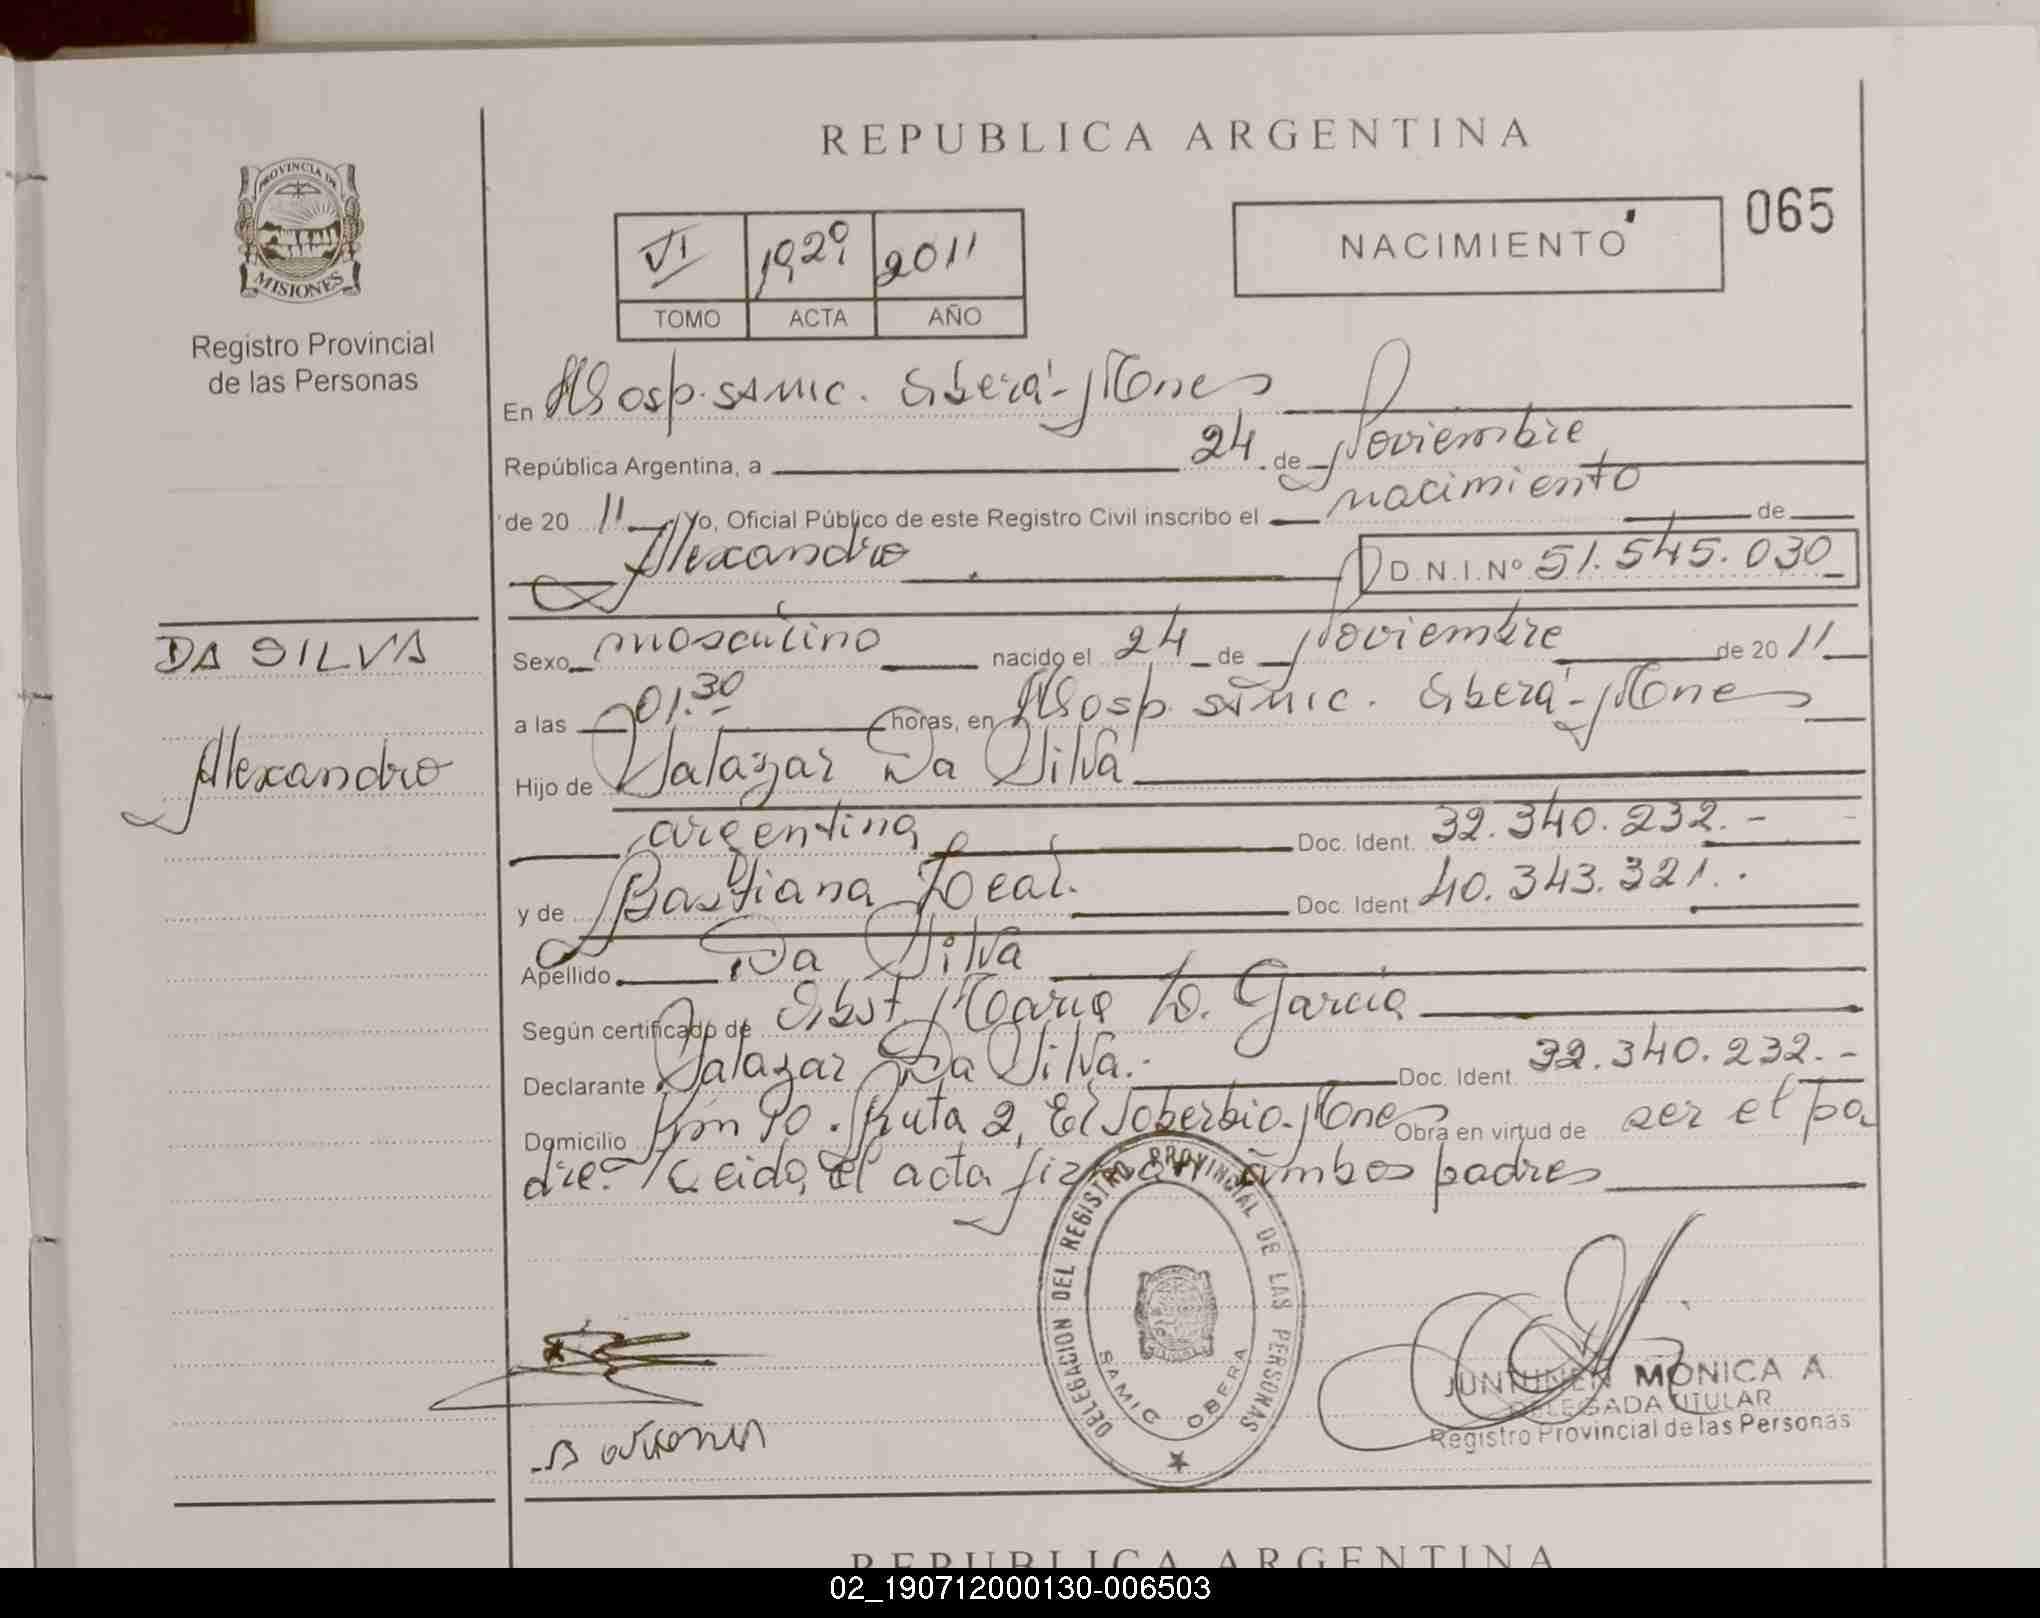 REPUBLICA ARGENTINA
PROVINCIA DE
MISIONES
Registro Provincial
de las Personas
VI 1929 2011
TOMO ACTA AÑO
NACIMIENTO
065
En Hosp. SAMIC. Oberá - Mnes
República Argentina, a 24 de Noviembre
de 20 11 Yo, Oficial Público de este Registro Civil inscribo el nacimiento de
Alexandro D.N.I.Nº 51.545.030
DA SILVA
Alexandro
Sexo masculino nacido el 24 de Noviembre de 20 11
a las 01.30 horas, en Hosp. SAMIC. Oberá - Mnes
Hijo de Salazar Da Silva
argentina Doc. Ident. 32.340.232.-
y de Bastiana Leal. Doc. Ident 40.343.321.-
Apellido Da Silva
Según certificado de Obst. Maria L. Garcia
Declarante Salazar Da Silva.- Doc. Ident. 32.340.232.-
Domicilio Km 90. Ruta 2, El Soberbio - Mnes Obra en virtud de ser el pa
dre. Leida el acta firman ambos padres
DELEGACION DEL REGISTRO PROVINCIAL DE LAS PERSONAS
SAMIC OBERA
JUNTUNEN MONICA A.
DELEGADA TITULAR
Registro Provincial de las Personas
REPUBLICA ARGENTINA
02_190712000130-006503